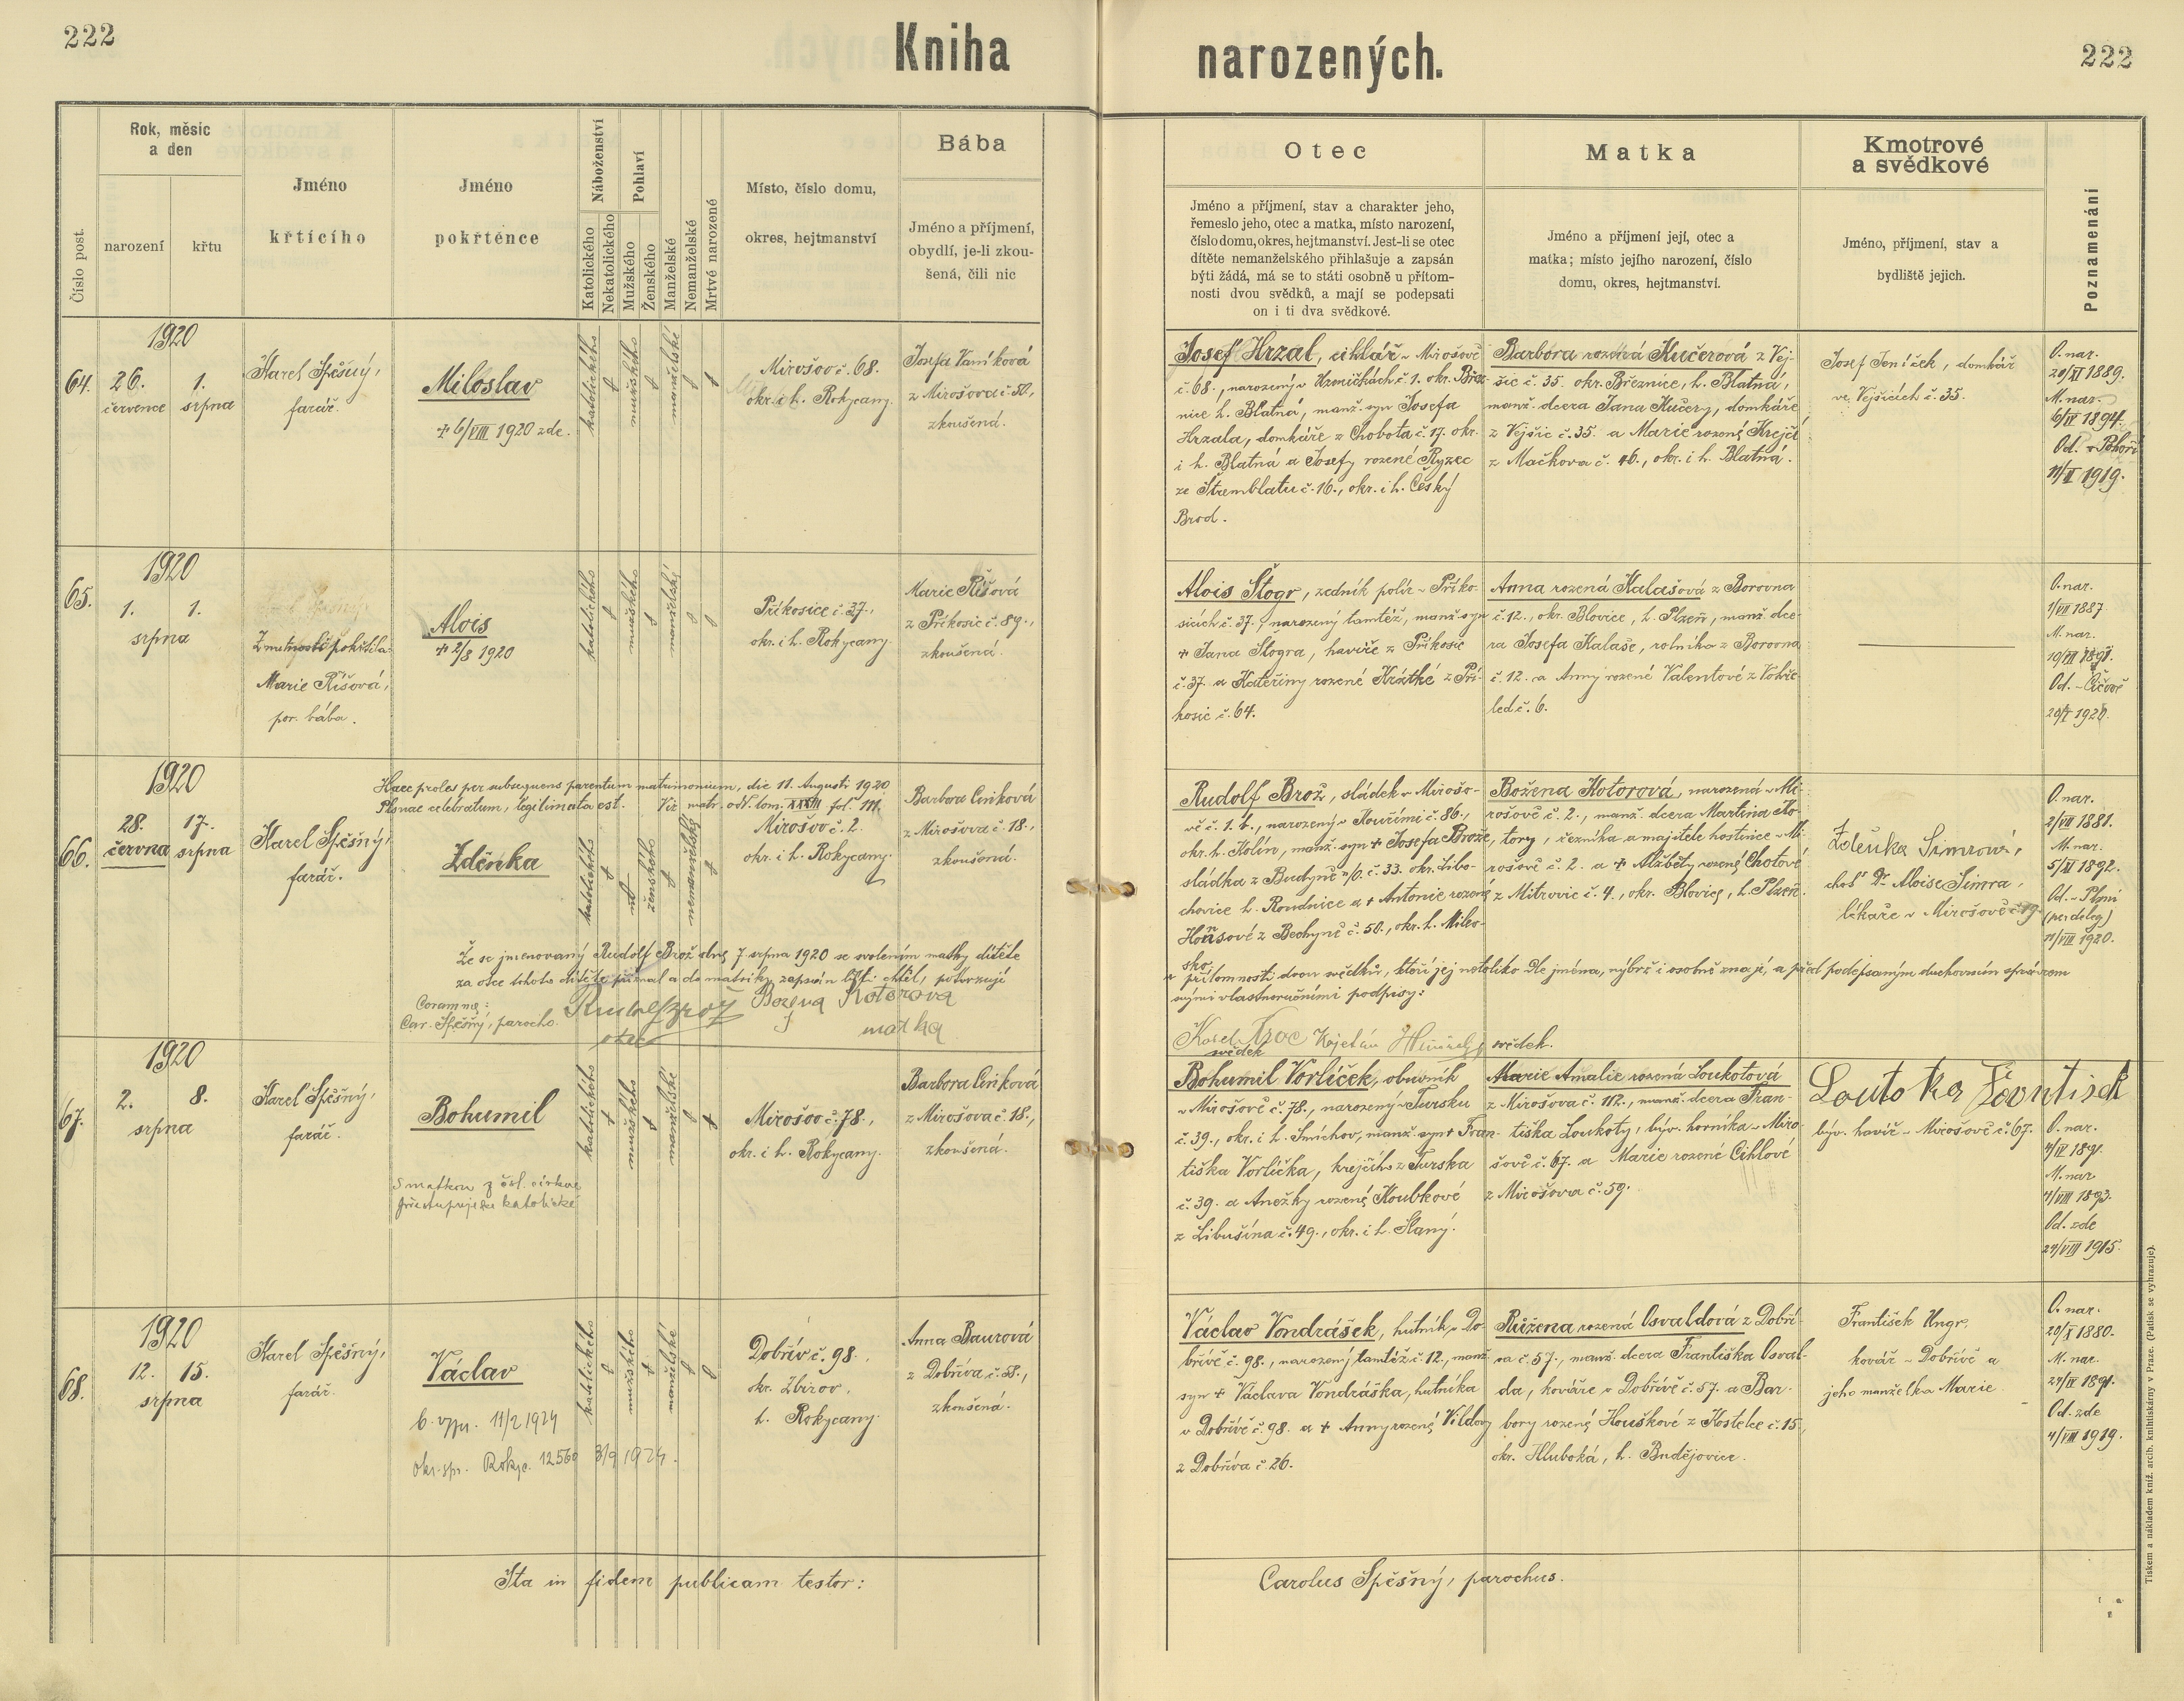 222
Kniha
narozených.
222
Číslo post.
Rok, měsíc
a den
narození
křtu
Jméno
křtícího
Jméno
pokřtěnce
Náboženství
Katolického
Nekatolického
Pohlaví
Mužského
Ženského
Manželské
Nemanželské
Mrtvé narozené
Místo, číslo domu,
okres, hejtmanství
Bába
Jméno a příjmení,
obydlí, je-li zkou-
šená, čili nic
Otec
Jméno a příjmení, stav a charakter jeho,
řemeslo jeho, otec a matka, místo narození,
číslo domu, okres, hejtmanství. Jest-li se otec
dítěte nemanželského přihlašuje a zapsán
býti žádá, má se to státi osobně u přítom-
nosti dvou svědků, a mají se podepsati
on i ti dva svědkové.
Matka
Jméno a příjmení její, otec a
matka; místo jejího narození, číslo
domu, okres, hejtmanství.
Kmotrové
a svědkové
Jméno, příjmení, stav a
bydliště jejich.
Poznamenání
64.
1920
26.
července
1.
srpna
Karel Spěšný,
farář.
Miloslav
+ 6/VIII 1920 zde.
katolického
mužského
manželské
Mirošov č. 68.
okr. i h. Rokycany.
Josefa Vaníková
z Mirošova č. 50.,
zkoušená.
Josef Hrzal, cihlář v Mirošově
č. 68., narozený v Uzeničkách č. 1. okr. Břez-
nice h. Blatná, manž. syn Josefa
Hrzala, domkáře z Chobota č. 17. okr.
i h. Blatná a Josefy rozené Ryzec
ze Štremblatu č. 16., okr. i h. Český
Brod.
Barbora rozená Kučerová z Vej-
šic č. 35. okr. Březnice, h. Blatná,
manž. dcera Jana Kučery, domkáře
z Vejšic č. 35. a Marie rozené Krejčí
z Mačkova č. 46., okr. i h. Blatná.
Josef Jeníček, domkář
ve Vejšicích č. 35.
O. nar.
20/XI 1889.
M. nar.
6/IV 1894.
Od. v Pohoří
11/II 1919.
65.
1920
1.
1.
srpna
Z nutnosti pokřtila
Marie Říšová,
por. bába.
Alois
+ 2/8 1920
katolického
mužského
manželské
Příkosice č. 37.,
okr. i h. Rokycany.
Marie Říšová
z Příkosic č. 89.,
zkoušená.
Alois Štogr, zedník polír v Příko-
sicích č. 37., narozený tamtéž, manž. syn
+ Jana Štogra, havíře z Příkosic
č. 37. a Kateřiny rozené Krátké z Pří-
kosic č. 64.
Anna rozená Kalašová z Borovna
č. 12., okr. Blovice, h. Plzeň, manž. dce-
ra Josefa Kalaše, rolníka z Borovna
č. 12. a Anny rozené Valentové z Vohře-
led č. 6.
O. nar.
1/VII 1887
M. nar.
Od. v Číčově
1920.
66.
1920
28.
června
17.
srpna
Karel Spěšný,
farář.
Haec proles per subsequens parentum matrimonium, die 11. Augusti 1920
Plsnae celebratum, legitimata est. Viz matr. odd. tom. XXXIII fol. 111.
Zdeňka
katolického
ženského
nemanželské
Mirošov č. 2.
okr. i h. Rokycany.
Barbora Ciriková
z Mirošova č. 18.,
zkoušená.
Rudolf Brož, sládek v Mirošo-
vě č. 1. b., narozený v Kouřimi č. 86.,
okr. h. Kolín, manž. syn + Josefa Brože,
sládka z Budyně n/O. č. 33. okr. Libo-
chovice h. Roudnice a + Antonie rozené
z Bechyně č. 50., okr. h. Milev-
sko.
Božena Kotorová, narozená v Mi-
rošově č. 2., manž. dcera Martina Ko-
tory, řezníka a majitele hostince v Mi-
rošově č. 2. a + Alžběty rozené Chotové
z Mitrovic č. 4., okr. Blovice, h. Plzeň.
Zdeňka Šimrová,
choť Dr. Aloise Šimra,
lékaře v Mirošově č. 19.
O. nar.
2/VIII 1881.
M. nar.
5/XI 1892.
Od. v Plzni
(per deleg.)
11/VIII 1920.
Že se jmenovaný Rudolf Brož dne 7. srpna 1920 se svolením matky dítěte
za otce tohoto dítěte přiznal a do matriky zapsán býti chtěl, potvrzují
v přítomnosti dvou svědků, kteří jej netoliko dle jména, nýbrž i osobně znají, a před podepsaným duchovním správcem
svými vlastnoručními podpisy:
Coram me:
Car. Spěšný, parocho.
Rudolf Brož
otec
Božena Kotorova
matka
Karel
svědek
Kajetán
svědek.
67.
1920
2.
8.
srpna
Karel Spěšný,
farář.
Bohumil
S matkou z čsl. církve
přestupuje ku katolické
katolického
mužského
manželské
Mirošov č. 78.,
okr. i h. Rokycany.
Barbora Ciriková
z Mirošova č. 18.,
zkoušená.
Bohumil Vorlíček, obuvník
v Mirošově č. 78., narozený v Tursku
č. 39., okr. i h. Smíchov, manž. syn + Fran-
tiška Vorlíčka, krejčího z Turska
č. 39. a Anežky rozené Koubkové
z Libušína č. 49., okr. i h. Slaný.
Marie Amalie rozená Loukotová
z Mirošova č. 112., manž. dcera Fran-
tiška Loukoty, býv. horníka v Miro-
šově č. 67. a Marie rozené Cihlové
z Mirošova č. 59.
býv. havíř v Mirošově č. 67.
O. nar.
4/IV 1891.
M. nar.
4/VIII 1893.
Od. zde
24/VIII 1915.
68.
1920
12.
15.
srpna
Karel Spěšný,
farář.
Václav
11/2 1924
okr. spr. Rokyc. 12560 3/9 1924.
katolického
mužského
manželské
Dobřív č. 98.
okr. Zbirov,
h. Rokycany.
Anna Baurová
z Dobříva č. 58.,
zkoušená.
Václav Vondrášek, hutník v Do-
břívě č. 98., narozený tamtéž č. 12., manž.
syn + Václava Vondráška, hutníka
v Dobřívě č. 98. a + Anny rozené Vildovy
z Dobříva č. 26.
Růžena rozená Osvaldová z Dobří-
va č. 57., manž. dcera Františka Osval-
da, kováře v Dobřívě č. 57. a Bar-
bory rozené Houškové z Kostelce č. 15.,
okr. Hluboká, h. Budějovice.
František Ungr,
kovář v Dobřívě a
jeho manželka Marie.
O. nar.
20/X 1880.
M. nar.
24/IV 1891.
Od. zde
4/VIII 1919.
Ita in fidem publicam testor:
Carolus Spěšný, parochus.
Tiskem a nákladem kníž. arcib. knihtiskárny v Praze. (Patisk se vyhrazuje).